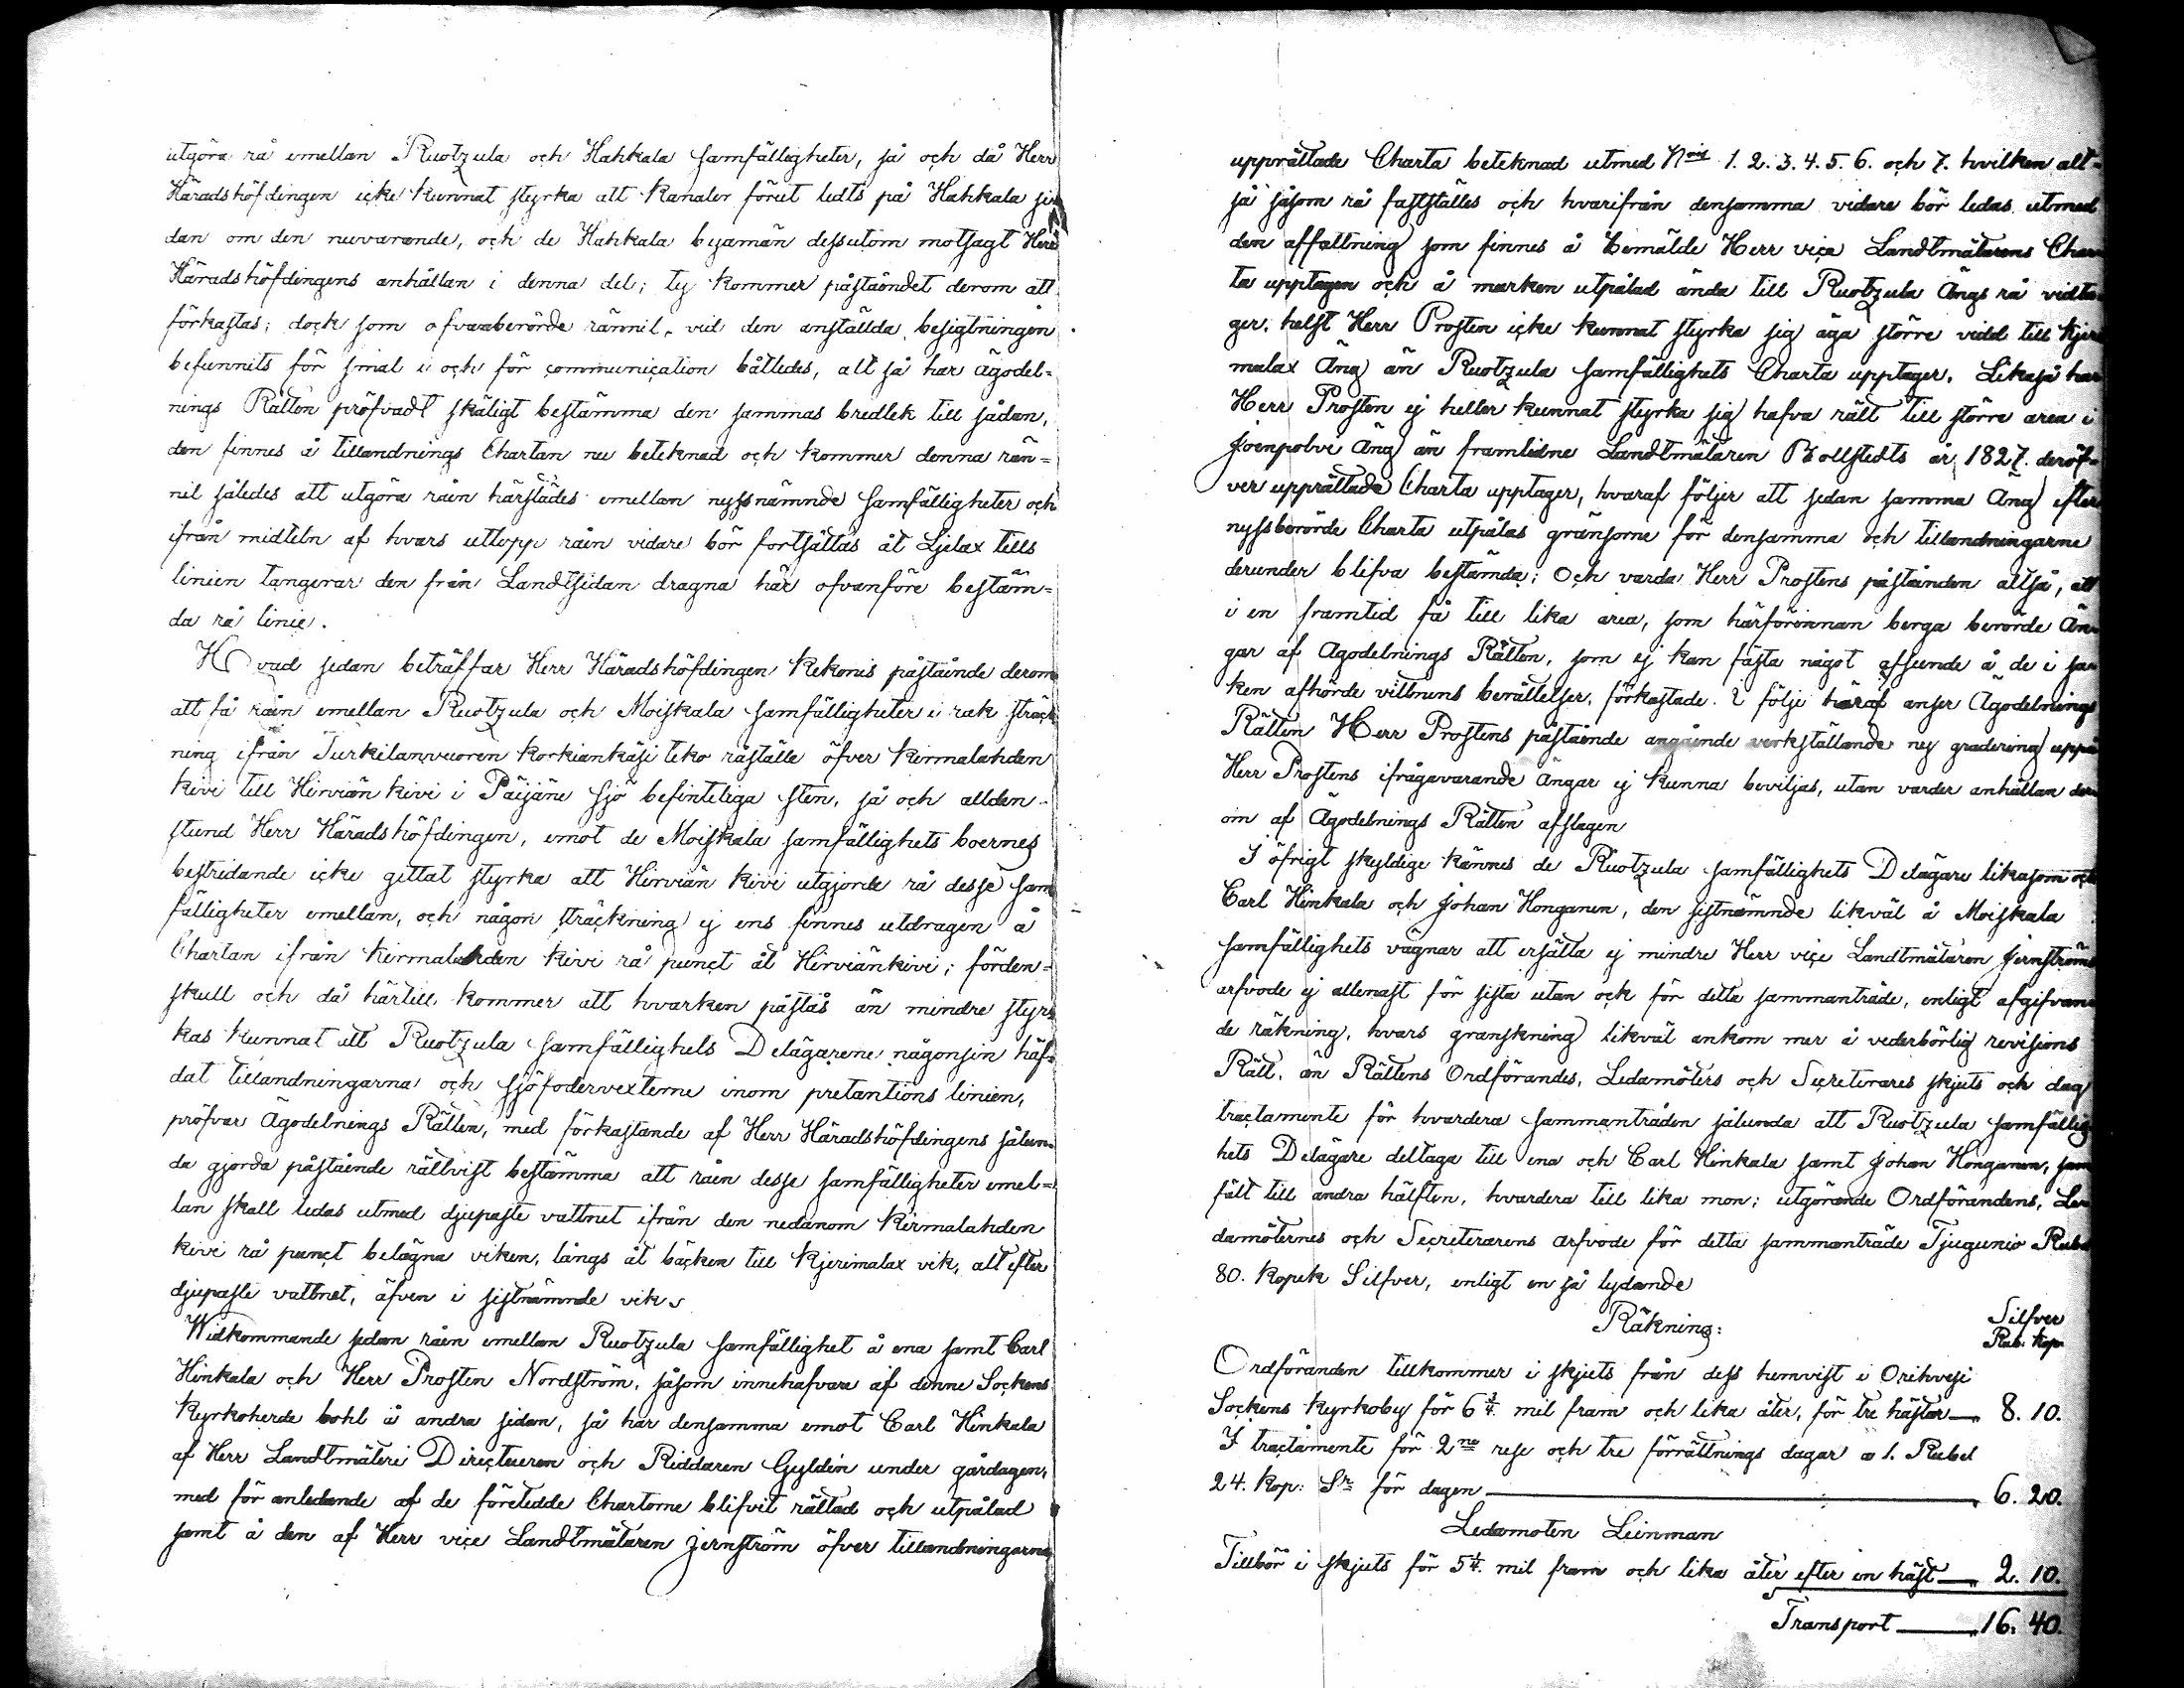 utgöra rå emellan Ruotzula och Hahkala samfälligheter, så och då Herr
Häradshöfdingen icke kunnat styrka att Kanalen förut ledts på Hahkala si
dan om den nuvarande, och de Hahkala byamän dessutom motsagt Herr
Häradshöfdingens anhållan i denna del; ty kommer påståendet derom att
förkastas; dock som ofvanberörde rännil, vid den anställda besigtningen
befunnits för smal i och för communication båtledes, alt så har Ägodel=
nings Rätten pröfvadt skäligt bestämma den sammas bredlek till sådan,
den finnes å tillandnings Chartan nu beteknad och kommer denna rän=
nil således att utgöra råen härstädes emellan nyssnämnde samfälligheter och
ifrån midteln af hvars utlopp råen vidare bör fortsättas åt Ljelax tills
linien tangerar den från Landtsidan dragna här ofvanföre bestäm=
da rå linie.
Hvad sedan beträffar Herr Häradshöfdingen Kekonis påstående derom
att få råen emellan Ruotzula och Moiskala samfälligheter i rak sträck
ning ifrån Turkilanvuoren korkiankäsi teko råställe öfver Kirmalahden
kivi till Hirviän kivi i Päijäne sjö befinteliga sten, så och allden-
stund Herr Häradshöfdingen, emot de Moiskala samfällighets boernes
bestridande icke gittat styrka att Hirviän kivi utgjorde rå desse sam
fälligheter emellan, och någon sträckning ej ens finnes utdragen å
Chartan ifrån Kirmalahden kivi rå punct åt Hirviänkivi; förden=
skull och då härtill kommer att hvarken påstås än mindre styr
kas kunnat att Ruotzula samfällighets Delägarene någonsin häf=
dat tillandningarna och sjöfodervexterne inom pretantions linien,
pröfvar Ägodelnings Rätten, med förkastande af Herr Häradshöfdingens sålun
da gjorda påstående rättvist bestämma att råen desse samfälligheter emel=
lan skall ledas utmed djupaste vattnet ifrån den nedanom Kirmalahden
kivi rå punct belägna viken, långs åt bäcken till Kjerimalax vik, alt efter
djupaste vattnet, äfven i sistnämnde vik.
Widkommande sedan råen emellan Ruotzula samfällighet å ena samt Carl
Hinkala och Herr Prosten Nordström, såsom innehafvare af denne Sockens
Kyrkoherde bohl å andra sidan, så har densamma emot Carl Hinkala
af Herr Landtmäteri Directeuren och Riddaren Gyldén under gårdagen,
med för anledande af de företedde Chartorne blifvit rättad och utpålad
samt å den af Herr vice Landtmätaren Jernström öfver tillandningarna
upprättade Charta beteknad utmed Nris 1. 2. 3. 4. 5. 6. och 7. hvilken alt=
så såsom rå fastställes och hvarifrån densamma vidare bör ledas utmed
den affattning som finnes å bemälde Herr vice Landtmätarens Char
ta upptagen och å marken utpålad ända till Ruotzula Ängs rå vidta
ger, helst Herr Prosten icke kunnat styrka sig äga större vidd till Kjeri
malax Äng än Ruotzula samfällighets Charta upptager. Likaså har
Herr Prosten ej heller kunnat styrka sig hafva rätt till större area i
Joenpolvi Äng än framlidne Landtmätaren Bollstedts år 1827. deröf=
ver upprättade Charta upptager, hvaraf följer att sedan samma Äng efter
nyssberörde Charta utpålas gränsorne för densamma och tillandningarne
derunder blifva bestämda; Och varda Herr Prostens påståenden altså, att
i en framtid få till lika area, som härförinnan berga berörde Än
gar af Ägodelnings Rätten, som ej kan fästa något afseende å de i sa
ken afhörde vittnens berättelser, förkastade. I följe häraf anser Ägodelnings
Rätten Herr Prostens påstående angående verkställande ny gradering uppå
Herr Prostens ifrågavarande Ängar ej kunna beviljas, utan varder anhållan der
om af Ägodelnings Rätten afslagen
I öfrigt skyldige kännes de Ruotzula samfällighets Delägare likasom och
Carl Hinkala och Johan Honganen, den sistnämnde likväl å Moiskala
samfällighets vägnar att ersätta ej mindre Herr vice Landtmätaren Jernströms
arfvode ej allenast för sista utan ock för detta sammanträde, enligt afgifvan
de räkning, hvars granskning likväl ankommer å vederbörlig revisions
Rätt, än Rättens Ordförandes, Ledamöters och Secreterares skjuts och dag
tractamente för hvardera sammanträden sålunda att Ruotzula samfällig
hets Delägare deltaga till ena och Carl Hinkala samt Johan Honganen, sam
fält till andra hälften, hvardera till lika mon; utgörande Ordförandens, Le
damöternes och Secreterarens arfvode för detta sammanträde Tjugunio Rub
80. Kopek Silfver, enligt en så lydande
Räkning: Silfver
Rub: Kop
Ordföranden tillkommer i skjuts från dess hemvist i Orihvesi
Sockens Kyrkoby för 6 3/4 mil fram och lika åter, för tre hästar — 8. 10.
I tractamente för 2ne rese och tre förrättnings dagar a 1. Rubel
24. Kop: Sr för dagen — 6. 20.
Ledamoten Leinman
Tillkör i skjuts för 5 1/4 mil fram och lika åter efter en häst — 2. 10.
Transport — 16. 40.